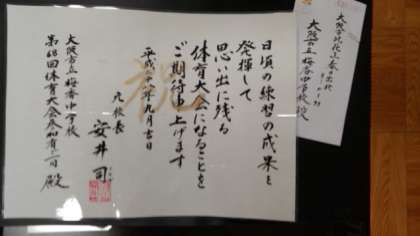 祝
日頃の練習の成果を
発揮して
思い出に残る
体育大会になることを
ご期待申上げます
平成二八年九月吉日
元校長
安井 司
大阪市立梅香中学校
第68回体育大会参加者一同 殿
大阪市此花区春日出北
大阪市立梅香中学校